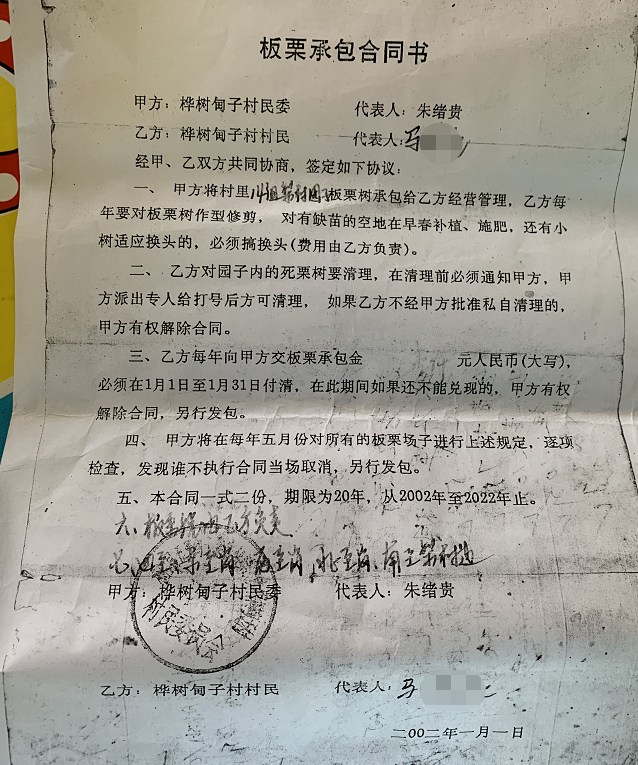 板栗承包合同书
甲方：桦树甸子村民委 代表人：朱绪贵
乙方：桦树甸子村村民 代表人：马
经甲、乙双方共同协商，签定如下协议：
一、甲方将村里 板栗树承包给乙方经营管理，乙方每
年要对板栗树作型修剪， 对有缺苗的空地在早春补植、施肥，还有小
树适应换头的，必须搞换头(费用由乙方负责)。
二、乙方对园子内的死栗树要清理，在清理前必须通知甲方，甲
方派出专人给打号后方可清理， 如果乙方不经甲方批准私自清理的，
甲方有权解除合同。
三、乙方每年向甲方交板栗承包金 元人民币(大写)，
必须在1月1日至1月31日付清，在此期间如果还不能兑现的，甲方有权
解除合同，另行发包。
四、 甲方将在每年五月份对所有的板栗场子进行上述规定，逐项
检查，发现谁不执行合同当场取消，另行发包。
五、本合同一式二份，期限为20年，从2002年至2022年止。
六、板栗 乙方负责
甲方：桦树甸子村民委 代表人：朱绪贵
村民委员会
乙方：桦树甸子村村民 代表人：马
二〇〇二年一月一日